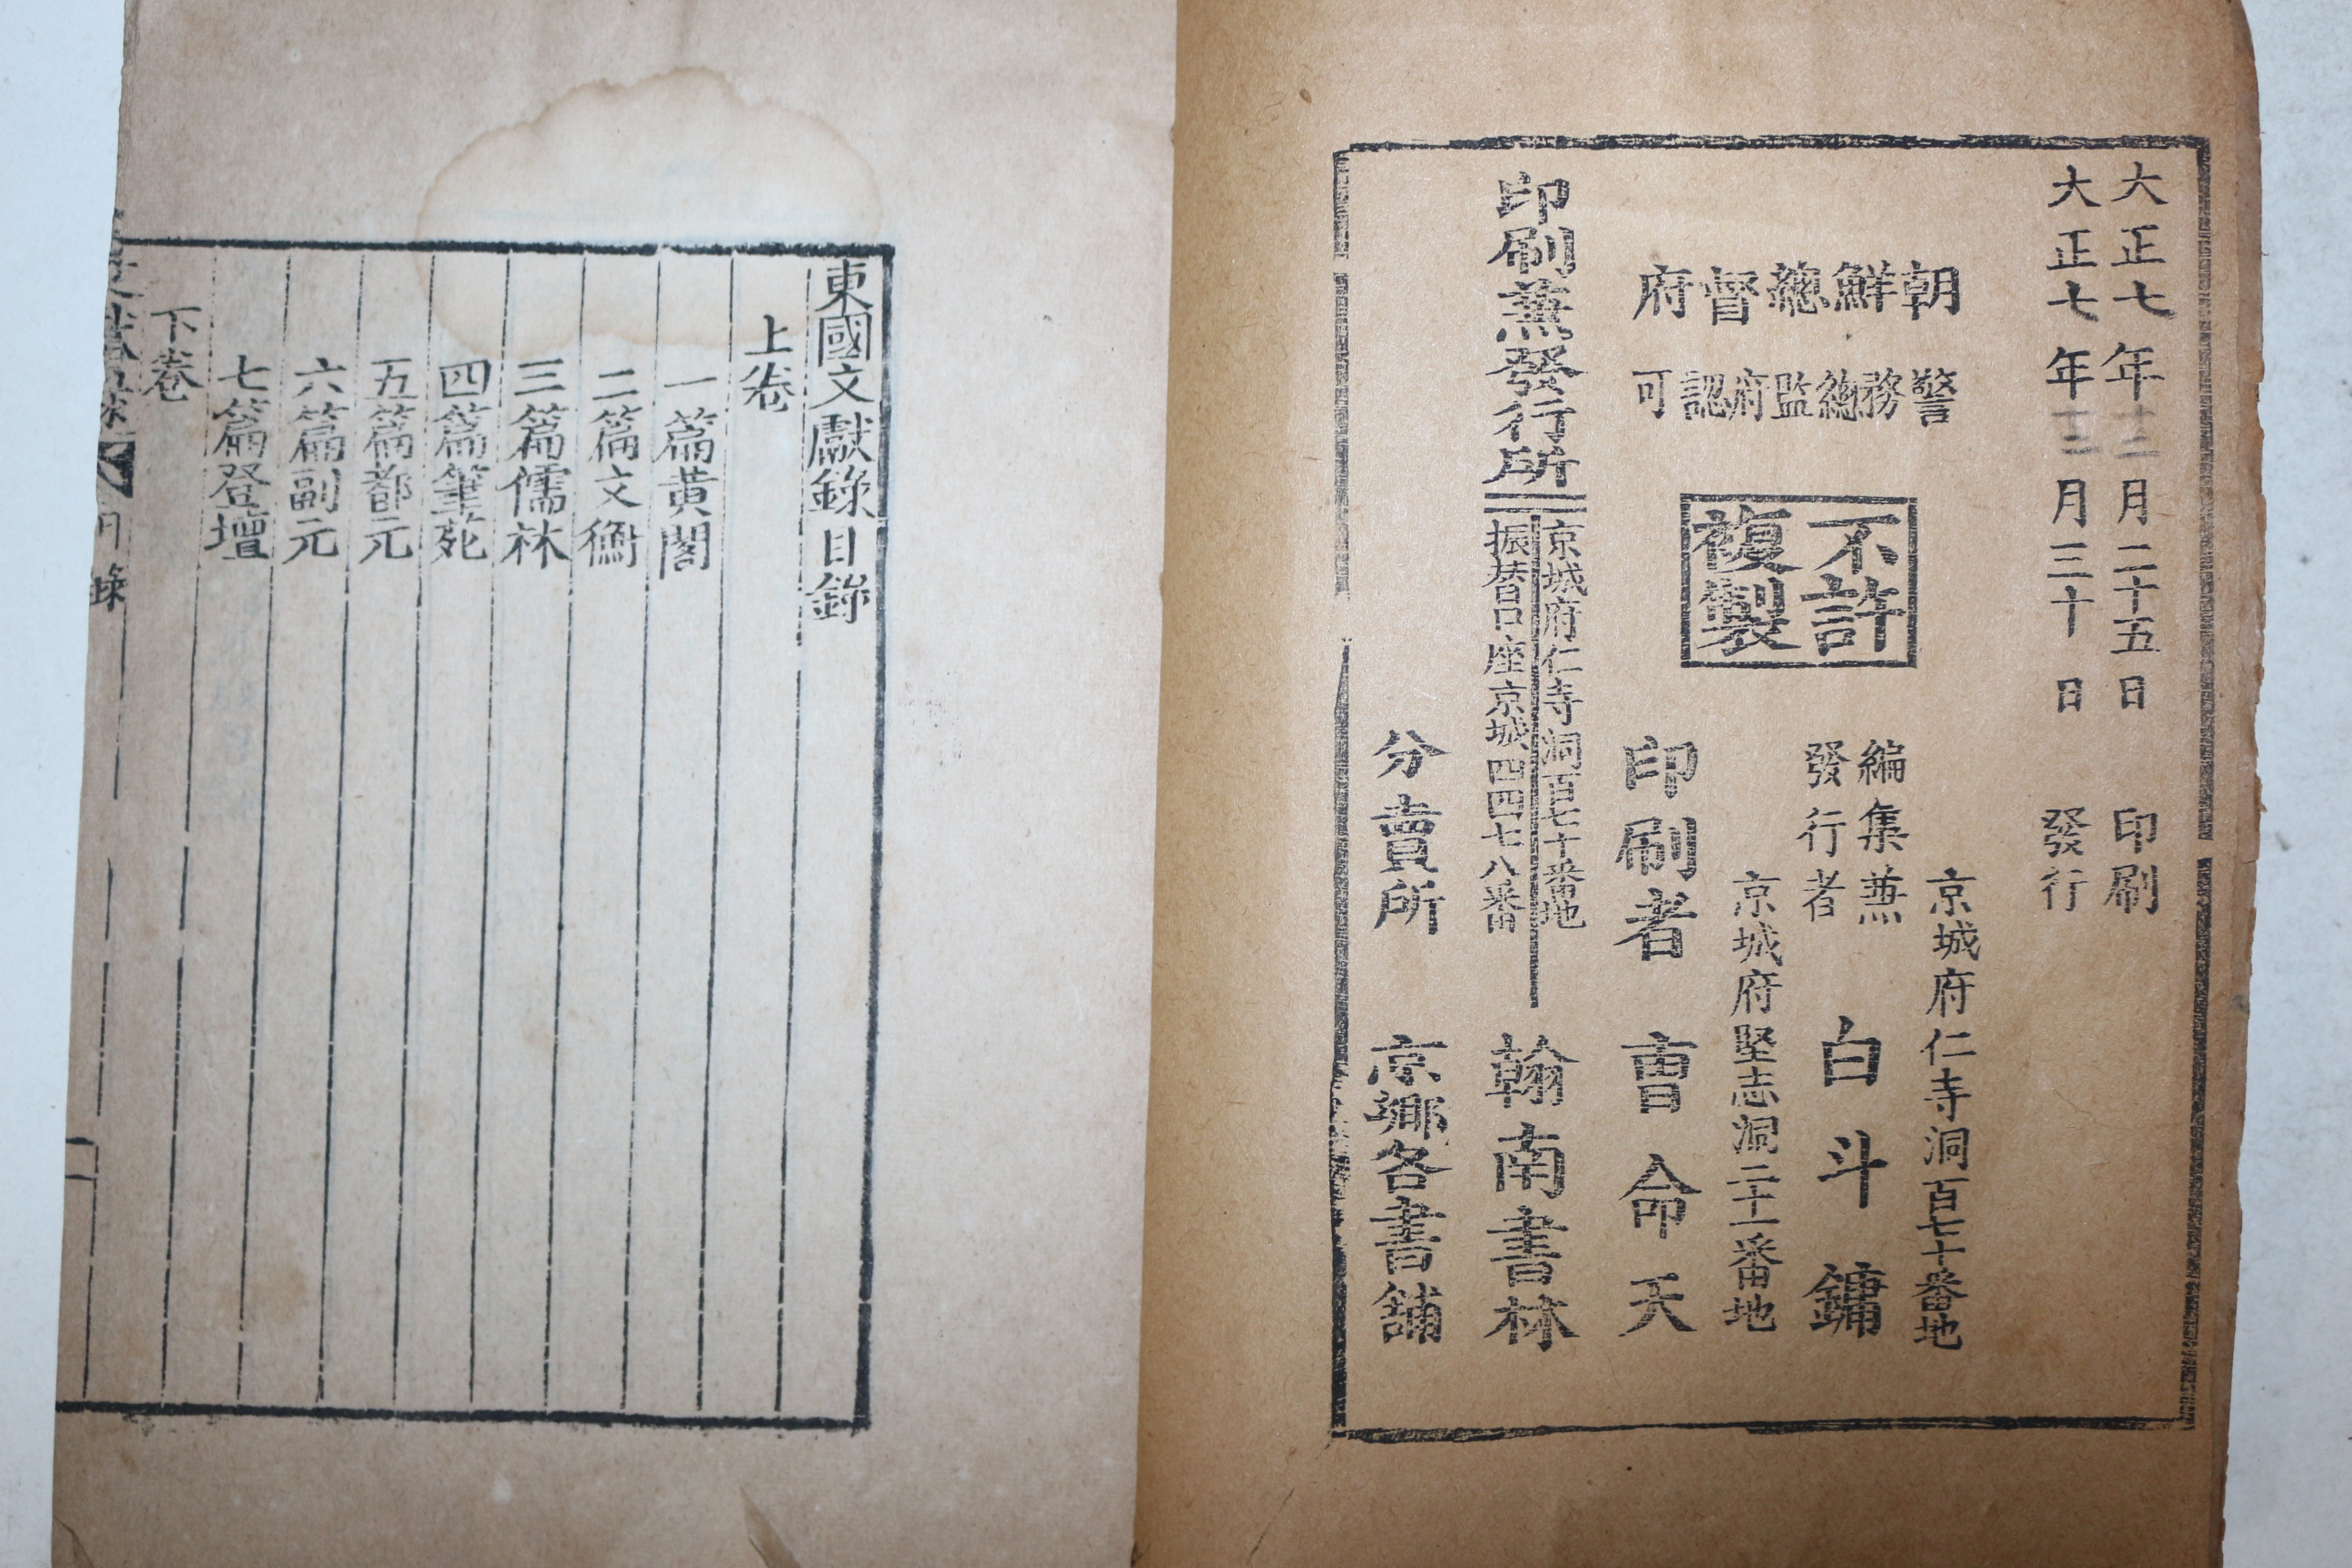 大正七年十二月二十五日 印刷
大正七年十二月三十日 發行
朝鮮總督府
警務總監府認可
不許
複製
京城府仁寺洞百七十番地
編集兼
發行者
白斗鏞
京城府堅志洞二十一番地
印刷者 曺命天
印刷兼發行所
京城府仁寺洞百七十番地
振替口座京城四四七八番
翰南書林
分賣所 京鄕各書舖
東國文獻錄目錄
上卷
一篇黃閣
二篇文衡
三篇儒林
四篇筆苑
五篇都元
六篇副元
七篇登壇
下卷
目錄
一